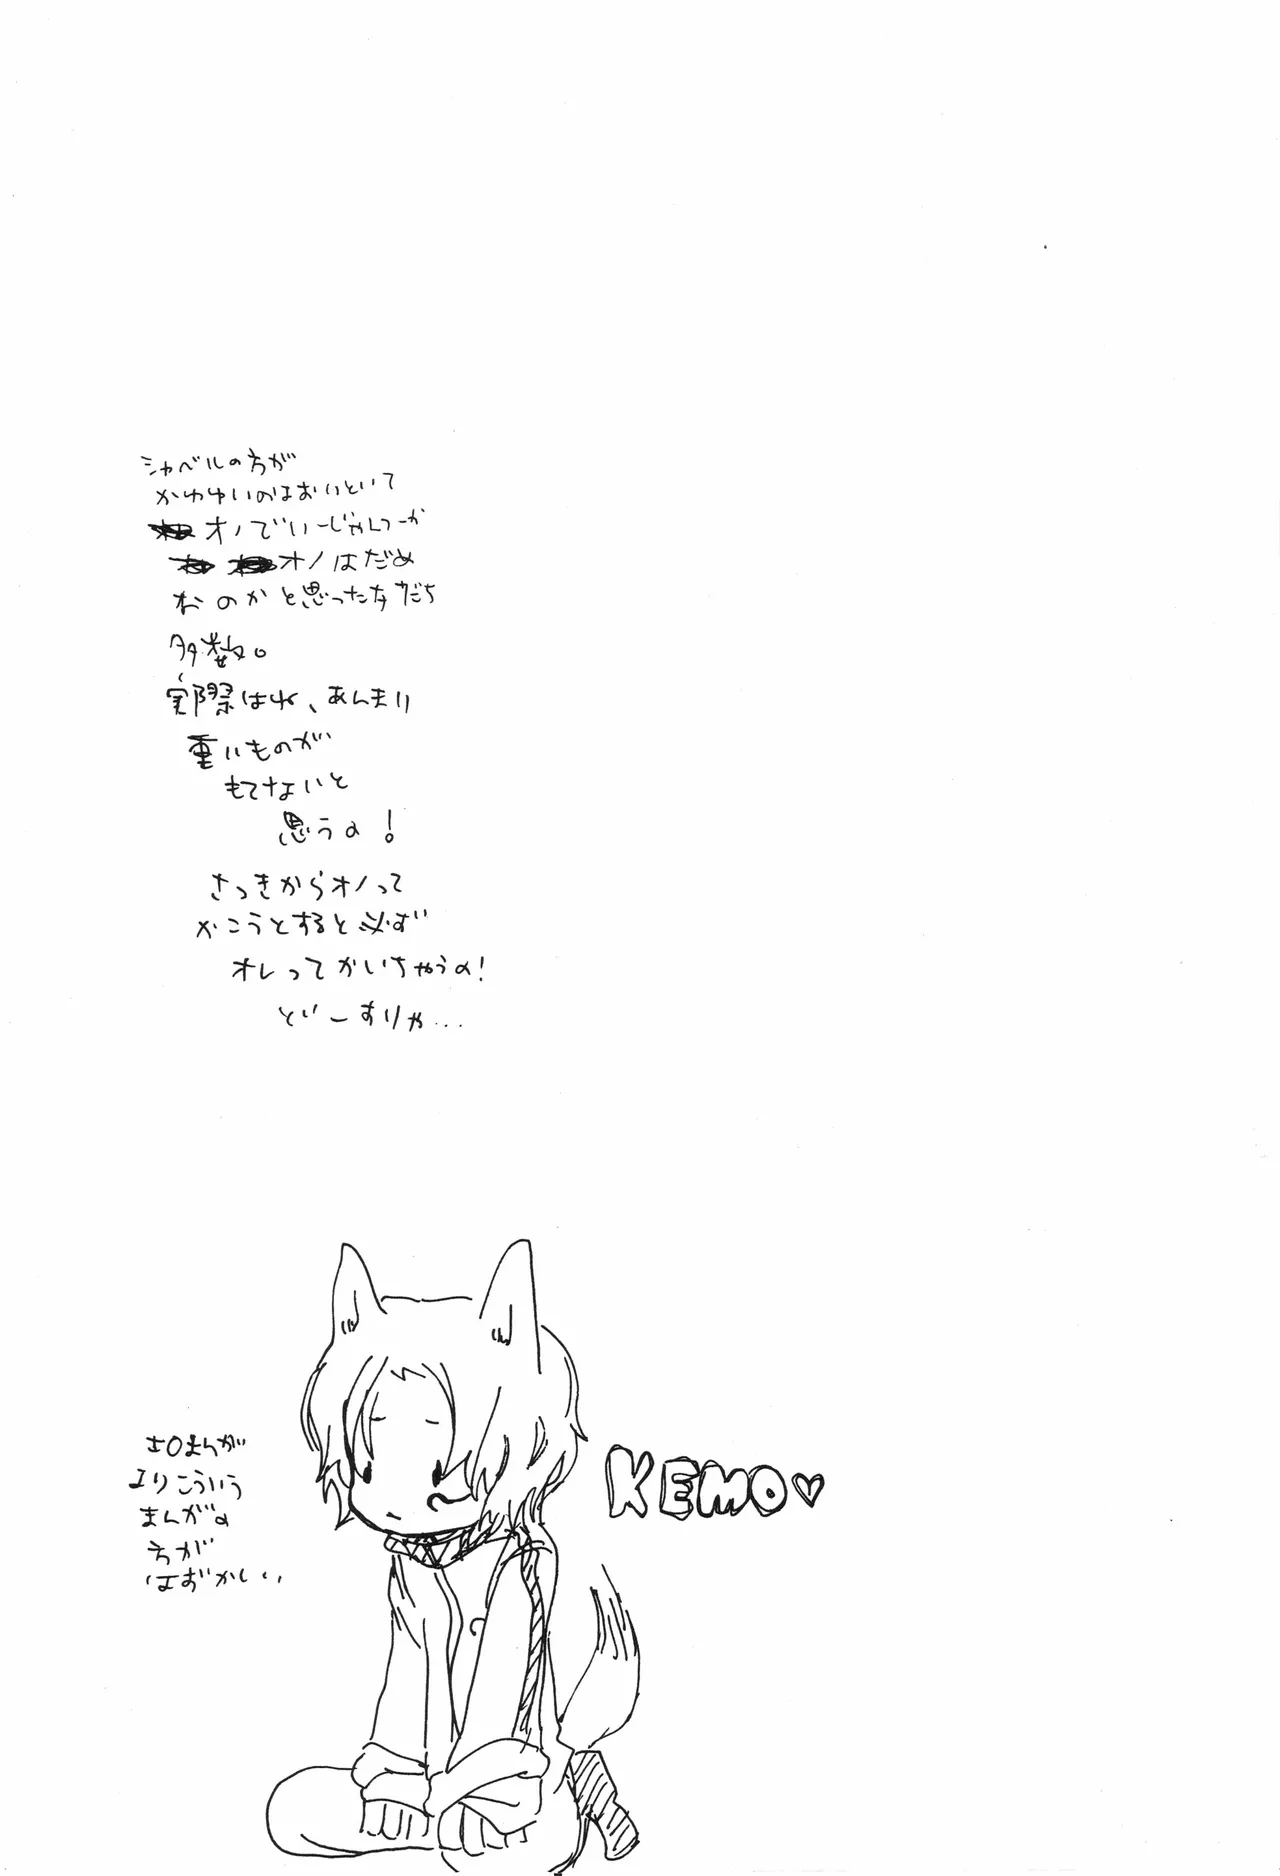 シャベルの方が
かわゆいのはおいといて
オノでいーじゃんつーか
オノはだめ
なのかと思ったなかだち
多数。
実際はね、あんまり
重いものが
もてないと
思うの!
さっきからオノって
かこうとすると必ず
オレってかいちゃうの!
どーすりゃ...
KEMO♡
エロまんが
よりこういう
まんがの
方が
はずかしい